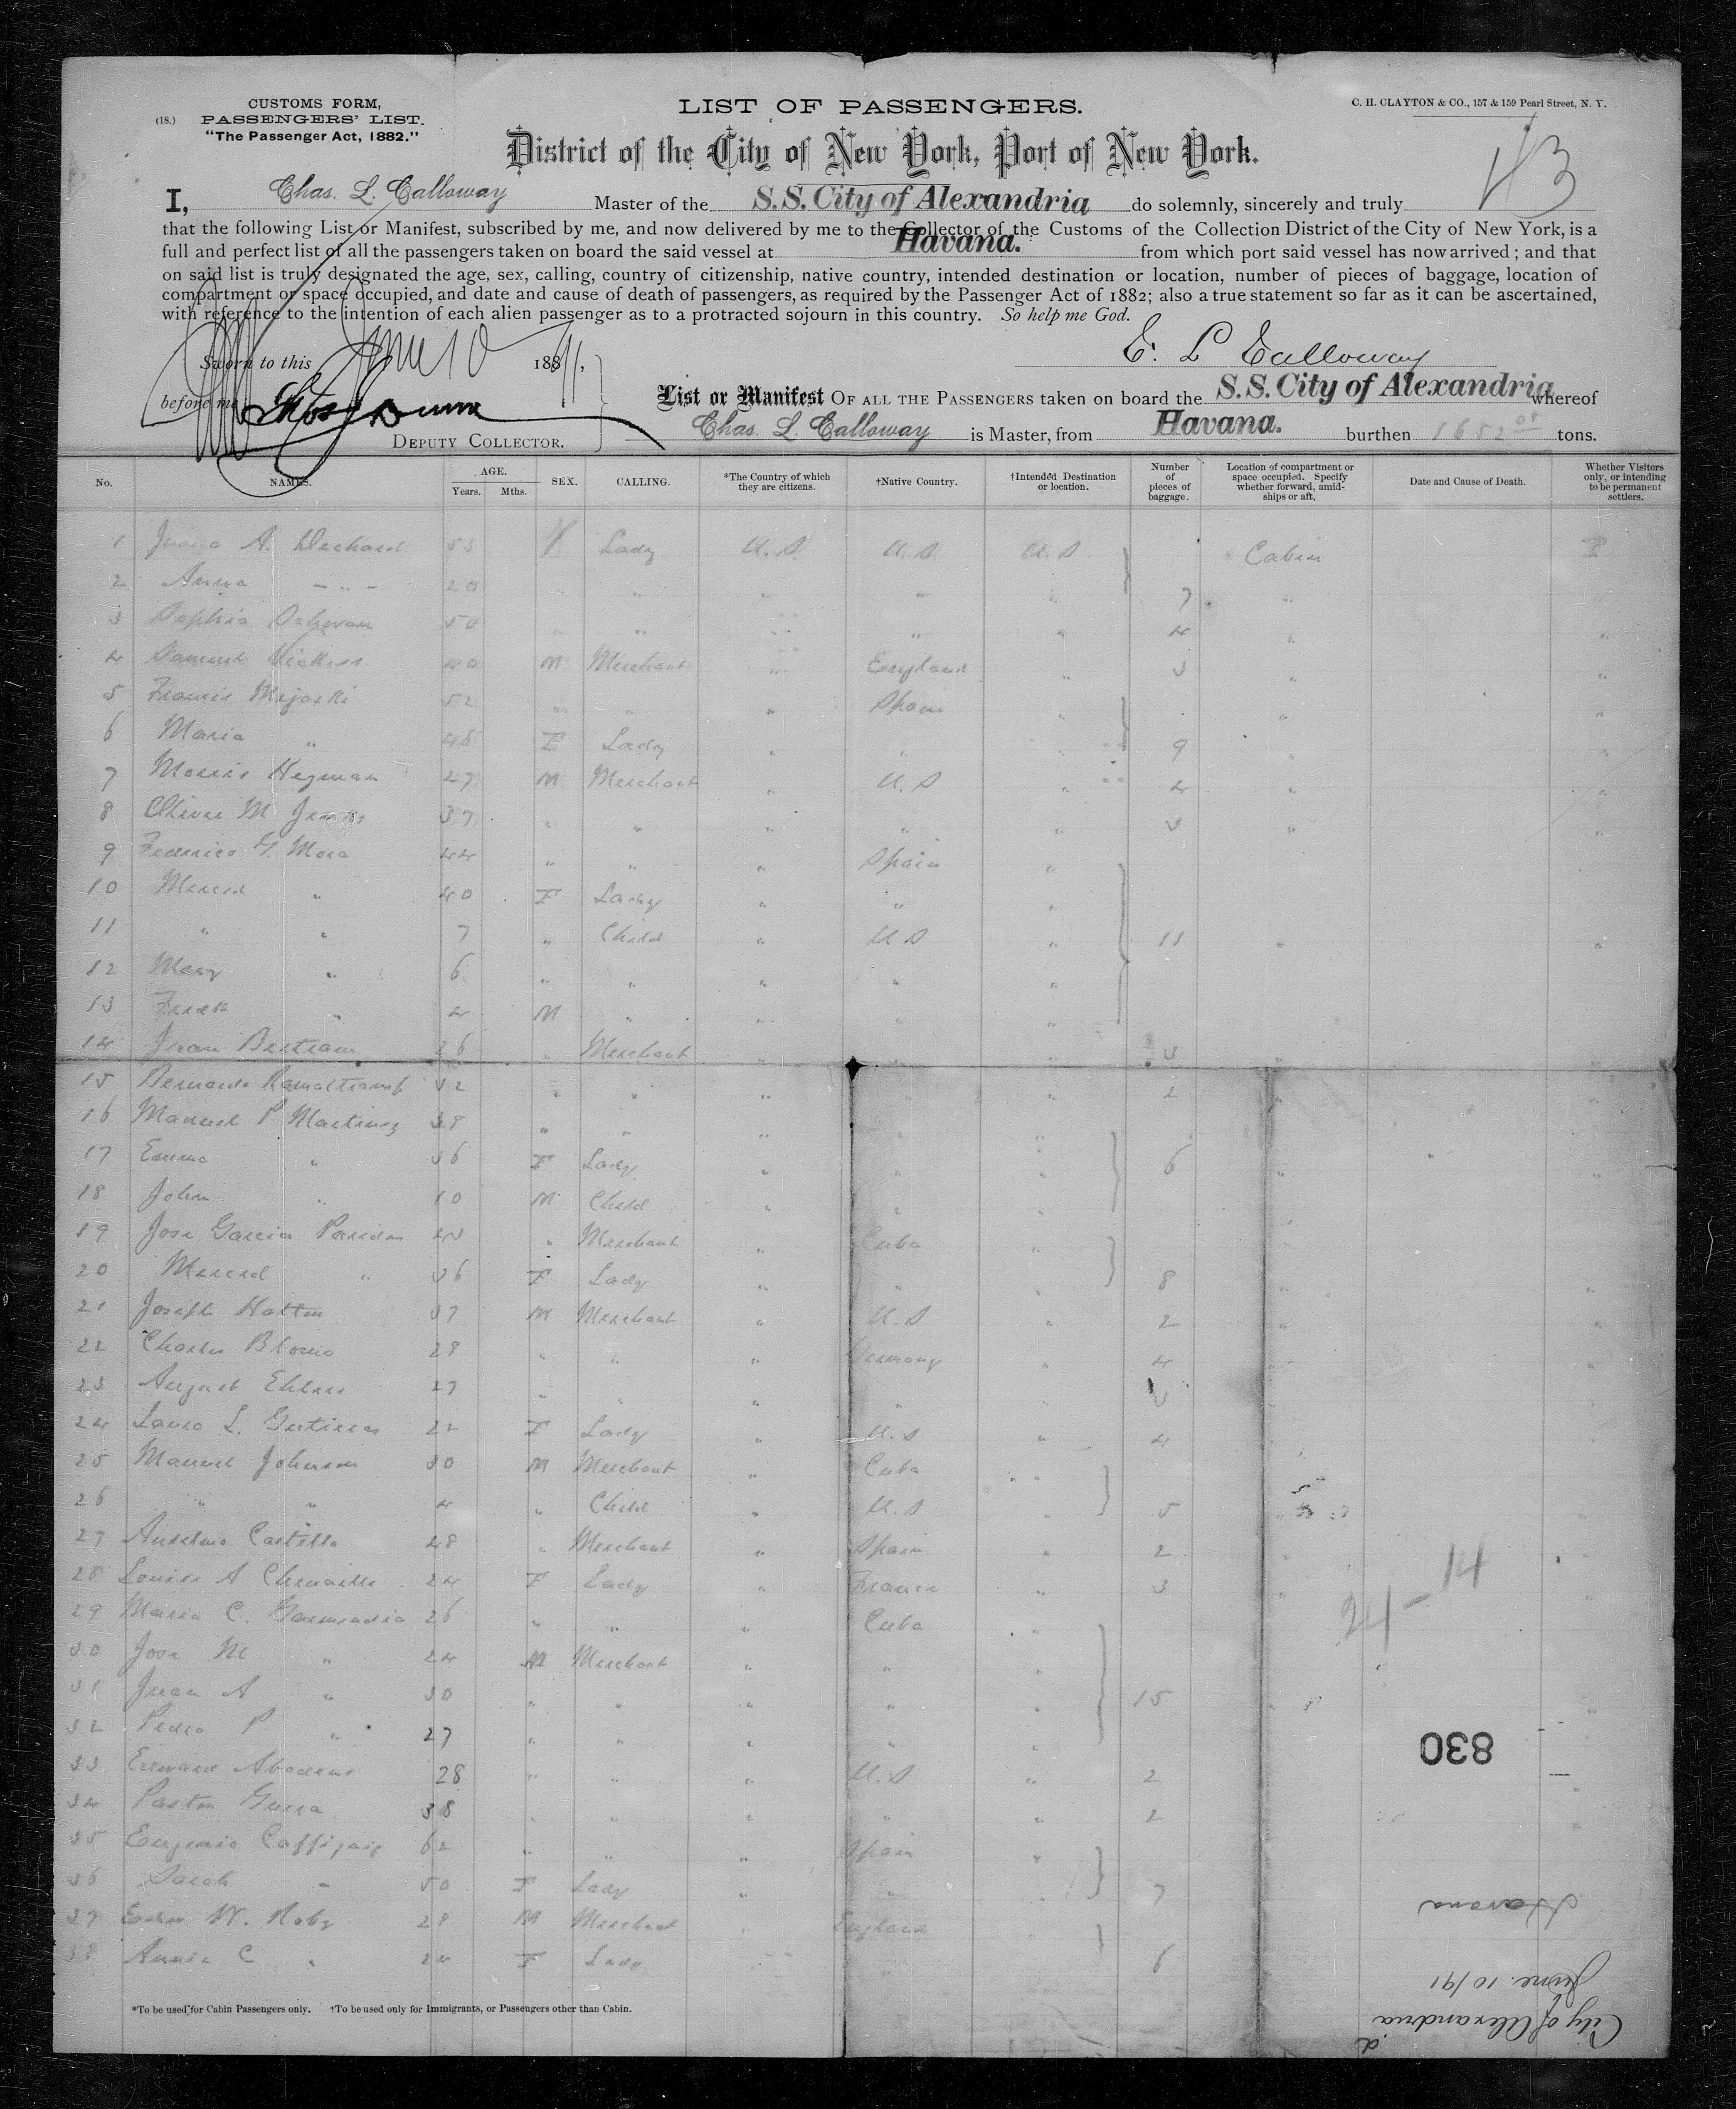 CUSTOMS FORM,
(18.) PASSENGERS' LIST.
"The Passenger Act, 1882."
LIST OF PASSENGERS.
C. H. CLAYTON & CO., 157 & 159 Pearl Street, N. Y.
District of the City of New York, Port of New York.
43
I, Chas. L. Calloway Master of the S.S. City of Alexandria do solemnly, sincerely and truly
that the following List or Manifest, subscribed by me, and now delivered by me to the Collector of the Customs of the Collection District of the City of New York, is a
full and perfect list of all the passengers taken on board the said vessel at Havana. from which port said vessel has now arrived; and that
on said list is truly designated the age, sex, calling, country of citizenship, native country, intended destination or location, number of pieces of baggage, location of
compartment or space occupied, and date and cause of death of passengers, as required by the Passenger Act of 1882; also a true statement so far as it can be ascertained,
with reference to the intention of each alien passenger as to a protracted sojourn in this country. So help me God.
Sworn to this June 10 1891,
C. L Calloway
before me Thos J Dunn
DEPUTY COLLECTOR.
List or Manifest OF ALL THE PASSENGERS taken on board the S.S. City of Alexandria whereof
Chas. L. Calloway is Master, from Havana. burthen 1652 08 tons.
No. NAMES. AGE. Years. Mths. SEX. CALLING. *The Country of which they are citizens. †Native Country. †Intended Destination or location. Number of pieces of baggage. Location of compartment or space occupied. Specify whether forward, amidships or aft. Date and Cause of Death. Whether Visitors only, or intending to be permanent settlers.
1 A. 53 F Lady U.S. U.S. U.S Cabin
2 Anna " 20 " " " " " 7 "
3 Sophia 50 " " " " " 4 " "
4 Samuel 40 M Merchant " England " 3 " "
5 Francis 52 " " " Spain " " "
6 Maria " 46 F Lady " " " 9 " "
7 Morris Heyman 47 M Merchant " U.S " 4 " "
8 Oliver M 37 " " " " " 3 " "
9 Federico G. Mora 44 " " " Spain "
10 Merced " 40 F Lady " " "
11 " " 7 " Child " U S " 11 " "
12 Mary " 6 " " " " "
13 Frank " 4 M " " " "
14 Juan Bertram 26 " Merchant " " " 3 "
15 Bernardo 32 " " " " " 2 " "
16 Manuel P Martinez 38 " " " " "
17 Emma " 36 F Lady " " " 6 " "
18 John " 10 M Child " " "
19 Jose Garcia 43 " Merchant " Cuba "
20 Merced " 36 F Lady " " 8 " "
21 Joseph Hatton 37 M Merchant " U.S " 2 " "
22 Charles 28 " " " Germany " 4 " "
23 August Ehlers 27 " " " " " 3
24 Laura L. Gutierres 22 F Lady " U.S " 4
25 Manuel Johnson 30 M Merchant " Cuba "
26 " " 4 " Child " U.S " 5 "
27 Anselmo Castillo 48 " Merchant " Spain " 2 "
28 Louise A 24 F Lady " France " 3 "
29 Maria C. Garmendia 26 " " " Cuba "
30 Jose M " 24 M Merchant " " "
31 Juan A " 30 " " " " " 15
32 Pedro P " 27 " " " " "
33 Edward 28 " " " U.S " 2
34 Pastor Guerra 38 " " " " " 2
35 Eugenio 62 " " " Spain "
36 Sarah " 50 F Lady " " 7
37 W. Roby 29 M Merchant England
38 Annie C " 24 F Lady 6
24-14
830
Havana
June 10/91
City of Alexandria
*To be used for Cabin Passengers only. †To be used only for Immigrants, or Passengers other than Cabin.